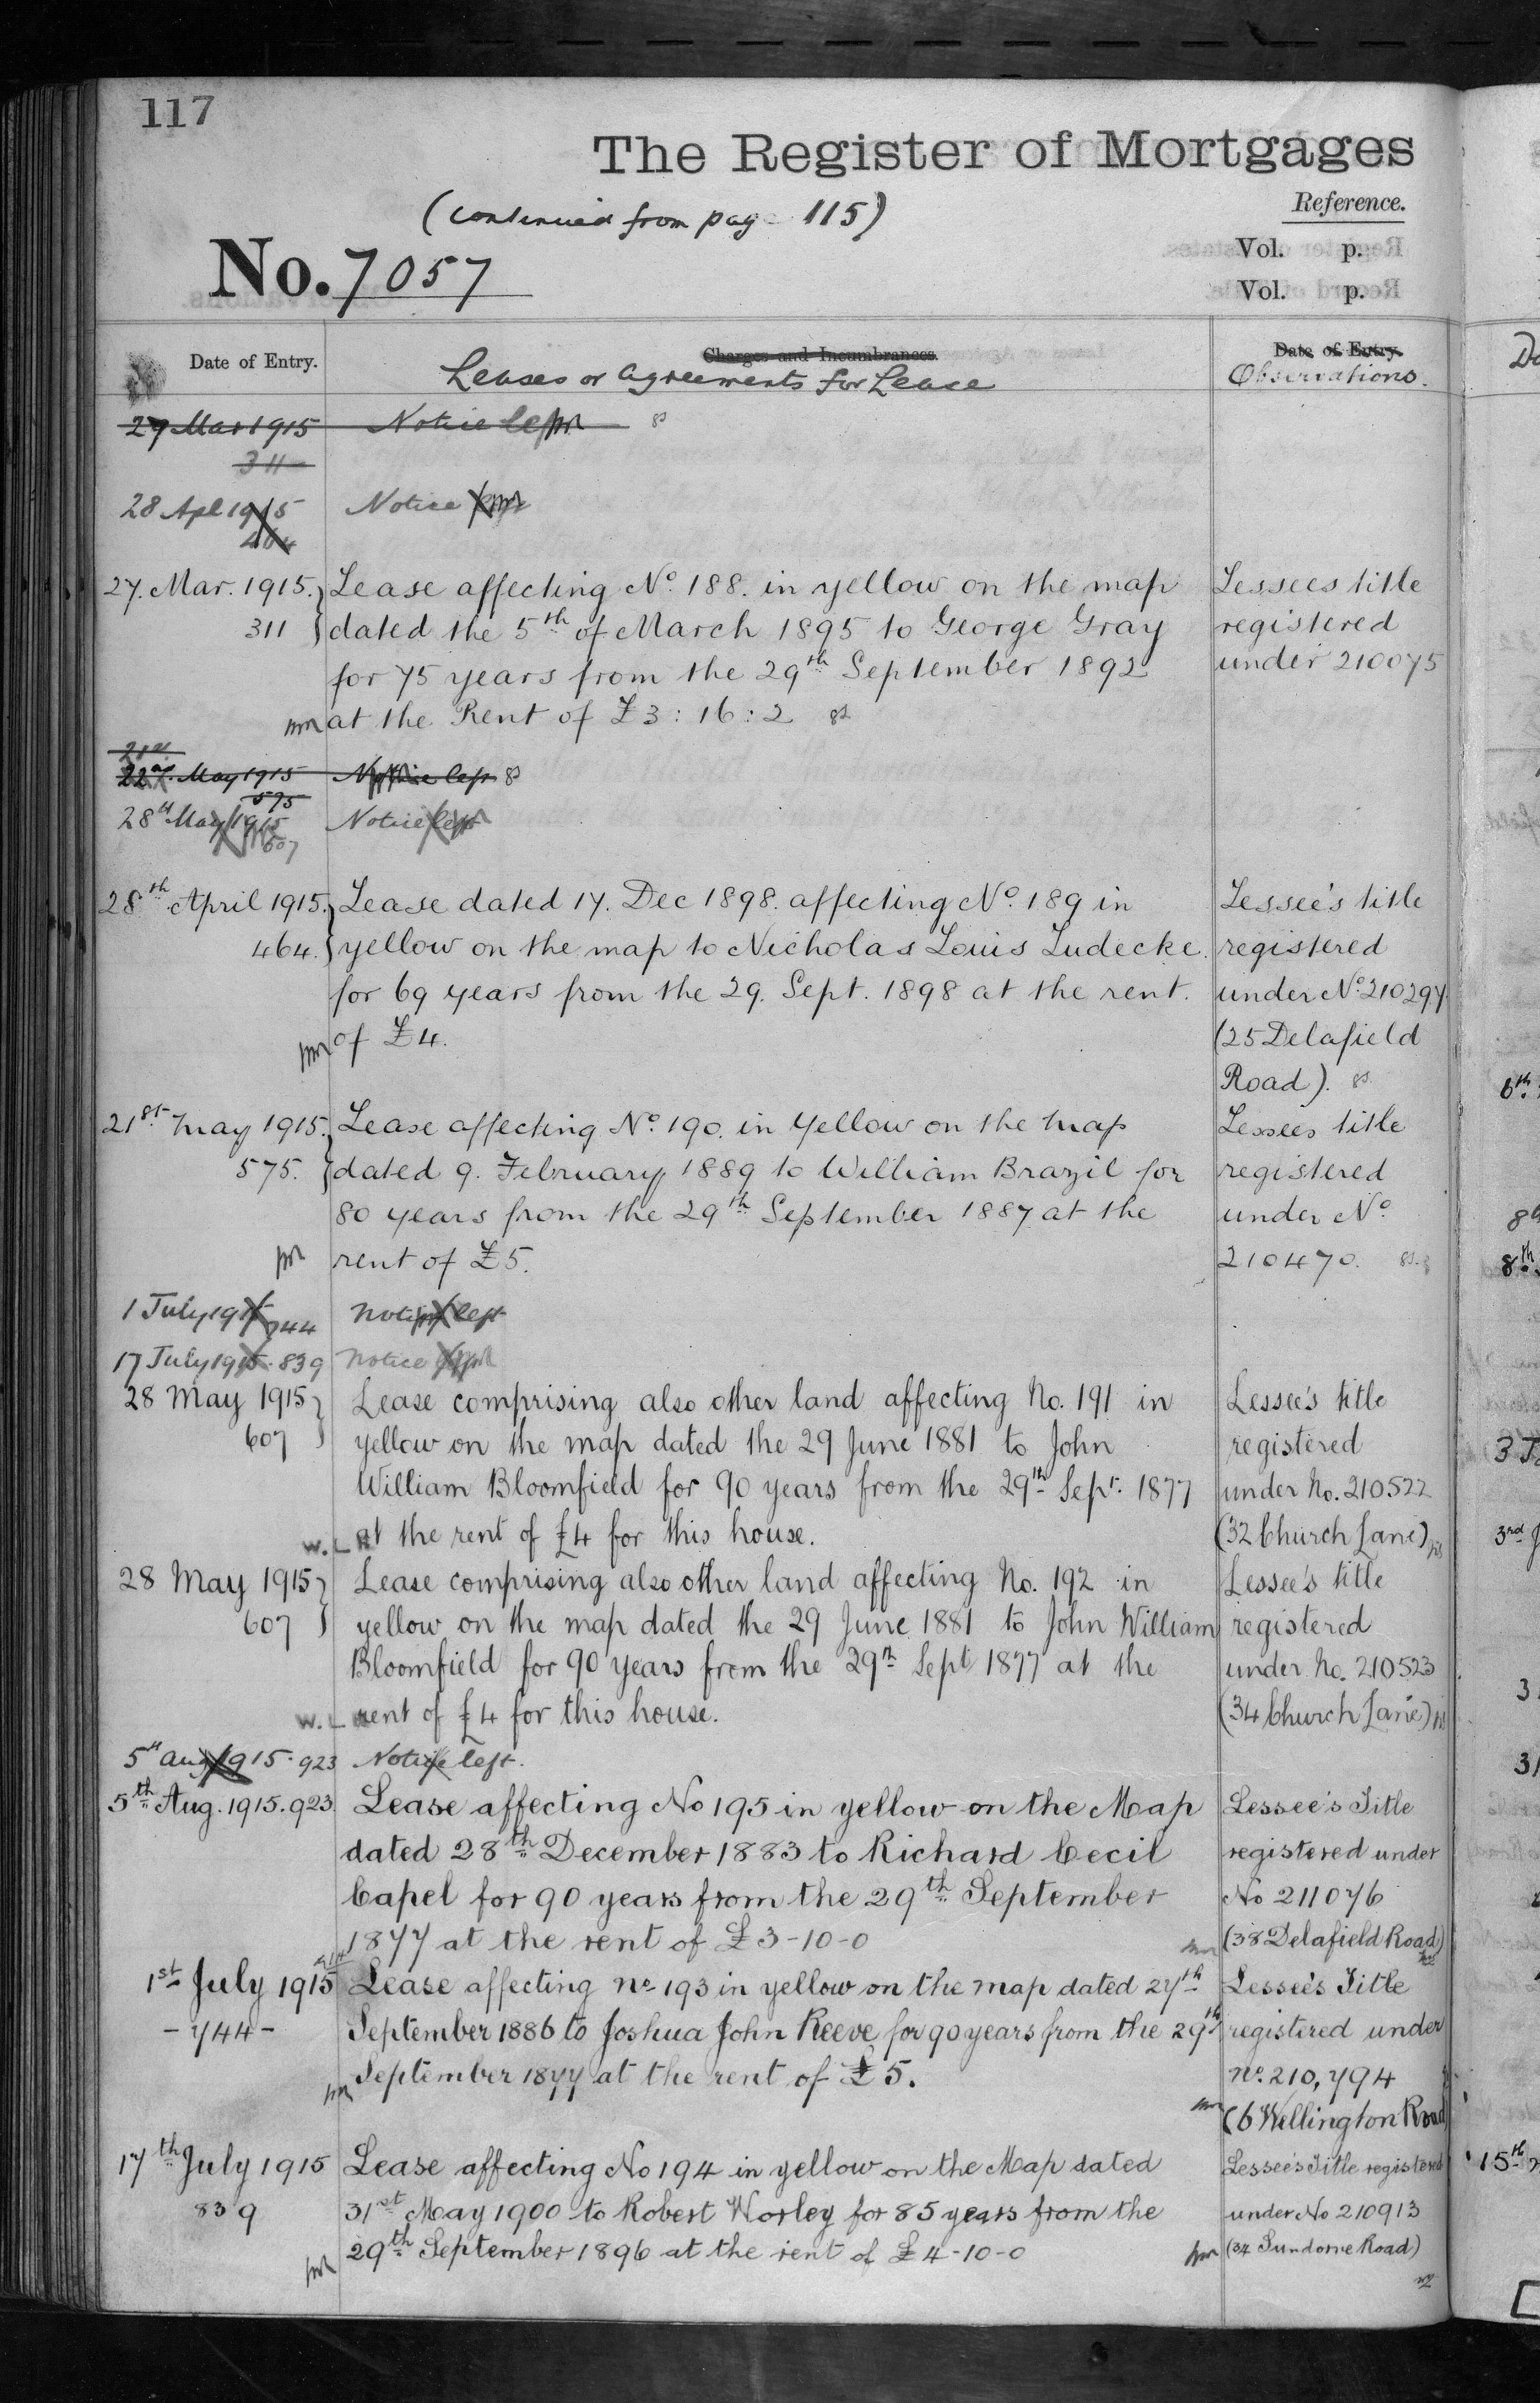 117
The Register of Mortgages
(continued from pag 115)
Reference.
No. 7057
Vol. p.
Vol. p.
Date of Entry.
Charges and Incumbrances.
Leases or Agreements for Lease
Date of Entry.
Observations.
29 Mar 1915 Notice left
311
28 Apl 1915 Notice
464
27. Mar. 1915. Lease affecting No. 188. in yellow on the map
311 dated the 5th of March 1895 to George Gray
for 75 years from the 29th September 1892
at the Rent of £3:16:2
Lessees title
registered
under 210075
21st
22nd May 1915 Notice left
575
28th May 1915 Notice left
607
28th April 1915. Lease dated 17. Dec 1898. affecting No. 189 in
464. yellow on the map to Nicholas Louis Ludecke.
for 69 years from the 29. Sept. 1898 at the rent.
of £4.
Lessee's title
registered
under No. 210297.
(25 Delafield
Road).
21st May 1915. Lease affecting No. 190. in Yellow on the Map
575. dated 9. February 1889 to William Brazil for
80 years from the 29th September 1887 at the
rent of £5.
Lessees title
registered
under No.
210470.
1 July 1915 744 Notice left
17 July 1915. 839 Notice
28 May 1915 Lease comprising also other land affecting No. 191 in
607 yellow on the map dated the 29 June 1881 to John
William Bloomfield for 90 years from the 29th Sept. 1877
W.L.R. at the rent of £4 for this house.
Lessee's title
registered
under No. 210522
(32 Church Lane)
28 May 1915 Lease comprising also other land affecting No. 192 in
607 yellow on the map dated the 29 June 1881 to John William
Bloomfield for 90 years from the 29th Sept 1877 at the
W.L. rent of £4 for this house.
Lessee's title
registered
under No. 210523
(34 Church Lane)
5th Aug 1915. 923 Notice left.
5th Aug. 1915. 923. Lease affecting No 195 in yellow on the Map
dated 28th December 1883 to Richard Cecil
Capel for 90 years from the 29th September
1877 at the rent of £3-10-0
Lessee's Title
registered under
No 211076
(38 Delafield Road)
1st July 1915 Lease affecting no. 193 in yellow on the map dated 27th
- 744 - September 1886 to Joshua John Reeve for 90 years from the 29th
September 1877 at the rent of £5.
Lessee's Title
registered under
no. 210,794
(6 Wellington Road
17th July 1915 Lease affecting No 194 in yellow on the Map dated
839 31st May 1900 to Robert Worley for 85 years from the
29th September 1896 at the rent of £4-10-0
Lessee's Title registered
under No 210913
(34 Sundorne Road)